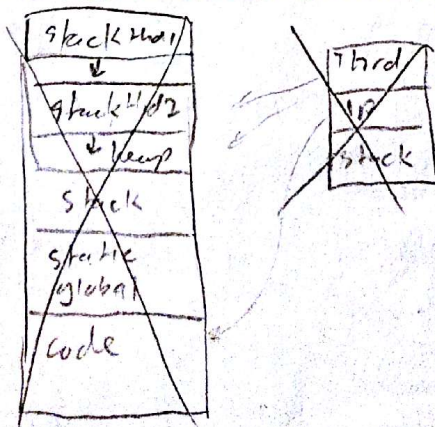 stack thd1
stack thd2
heap
stack
static
global
code
Thrd
IP
stack